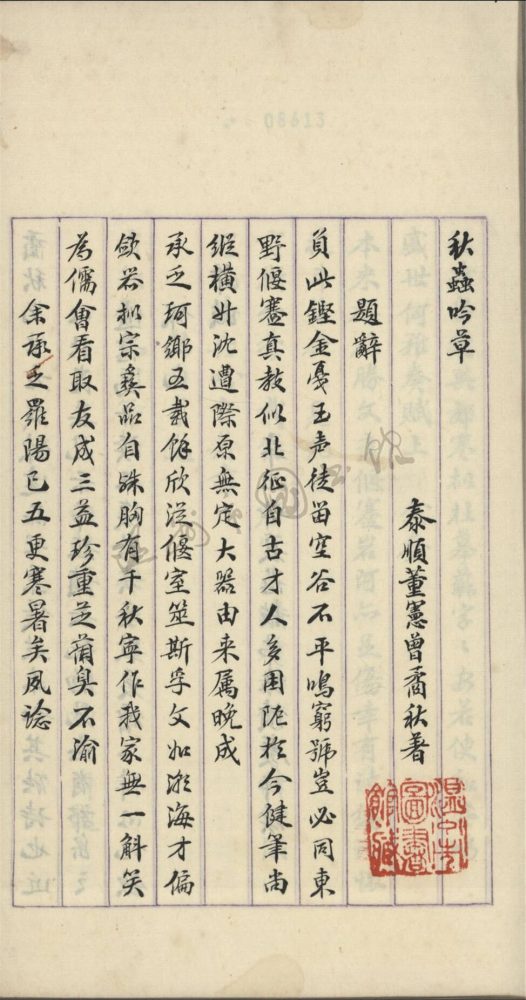 秋蟲吟草
泰順董憲曾矞秋著
題辭
負此鏗金戛玉声徒留空谷不平鳴窮號豈必同東
野偃蹇真教似北征自古才人多困阨於今健筆尚
縱橫升沈遭際原無定大器由来属晚成
承乏珂鄉五載餘欣從偃室筮斯孚文如潮海才偏
歛器擬宗彝品自殊胸有千秋寧作我家無一斛笑
為儒會看取友成三益珍重芝蘭臭不渝
余承乏羅陽已五更寒暑矣夙諗
溫州市
圖書
館藏